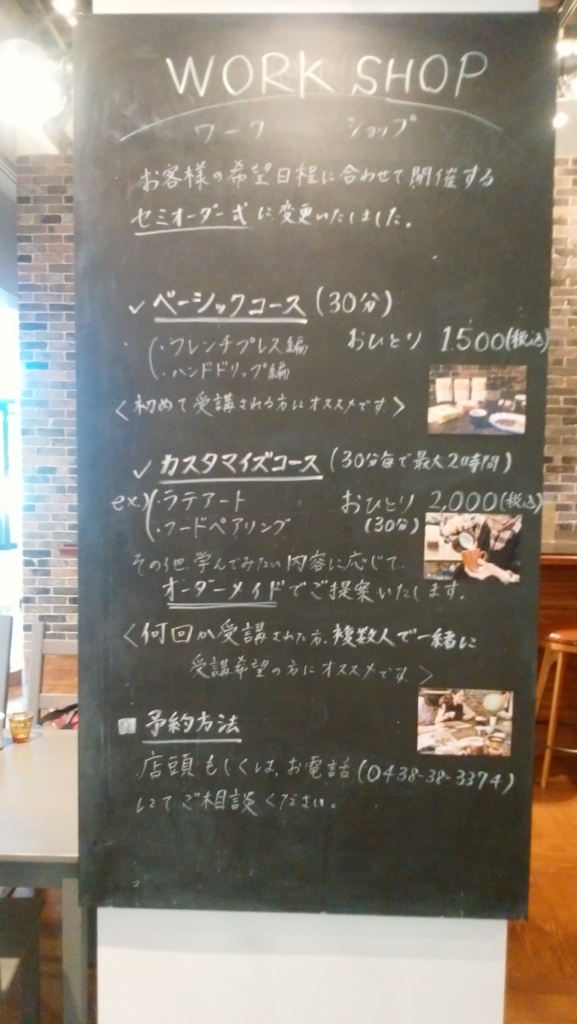 WORK SHOP
ワーク ショップ
お客様の希望日程に合わせて開催する
セミオーダー式に変更いたしました。
✓ ベーシックコース (30分)
・フレンチプレス編 おひとり 1,500(税込)
・ハンドドリップ編
〈初めて受講される方にオススメです〉
✓ カスタマイズコース (30分毎で最大2時間)
ex) ・ラテアート おひとり 2,000(税込)
・フードペアリング (30分)
その他、学んでみたい内容に応じて、
オーダーメイドでご提案いたします。
〈何回か受講された方、複数人で一緒に
受講希望の方にオススメです〉
予約方法
店頭もしくは、お電話(0438-38-3374)
にてご相談ください。